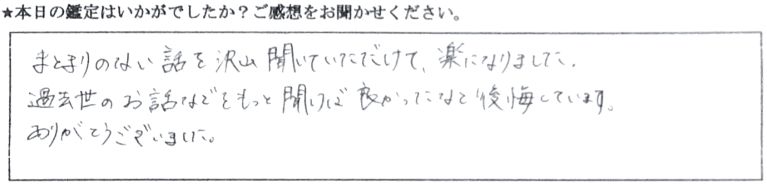 ★本日の鑑定はいかがでしたか？ご感想をお聞かせください。
まとまりのない話を沢山聞いていただけて、楽になりました。
過去世のお話などをもっと聞けば良かったなと後悔しています。
ありがとうございました。